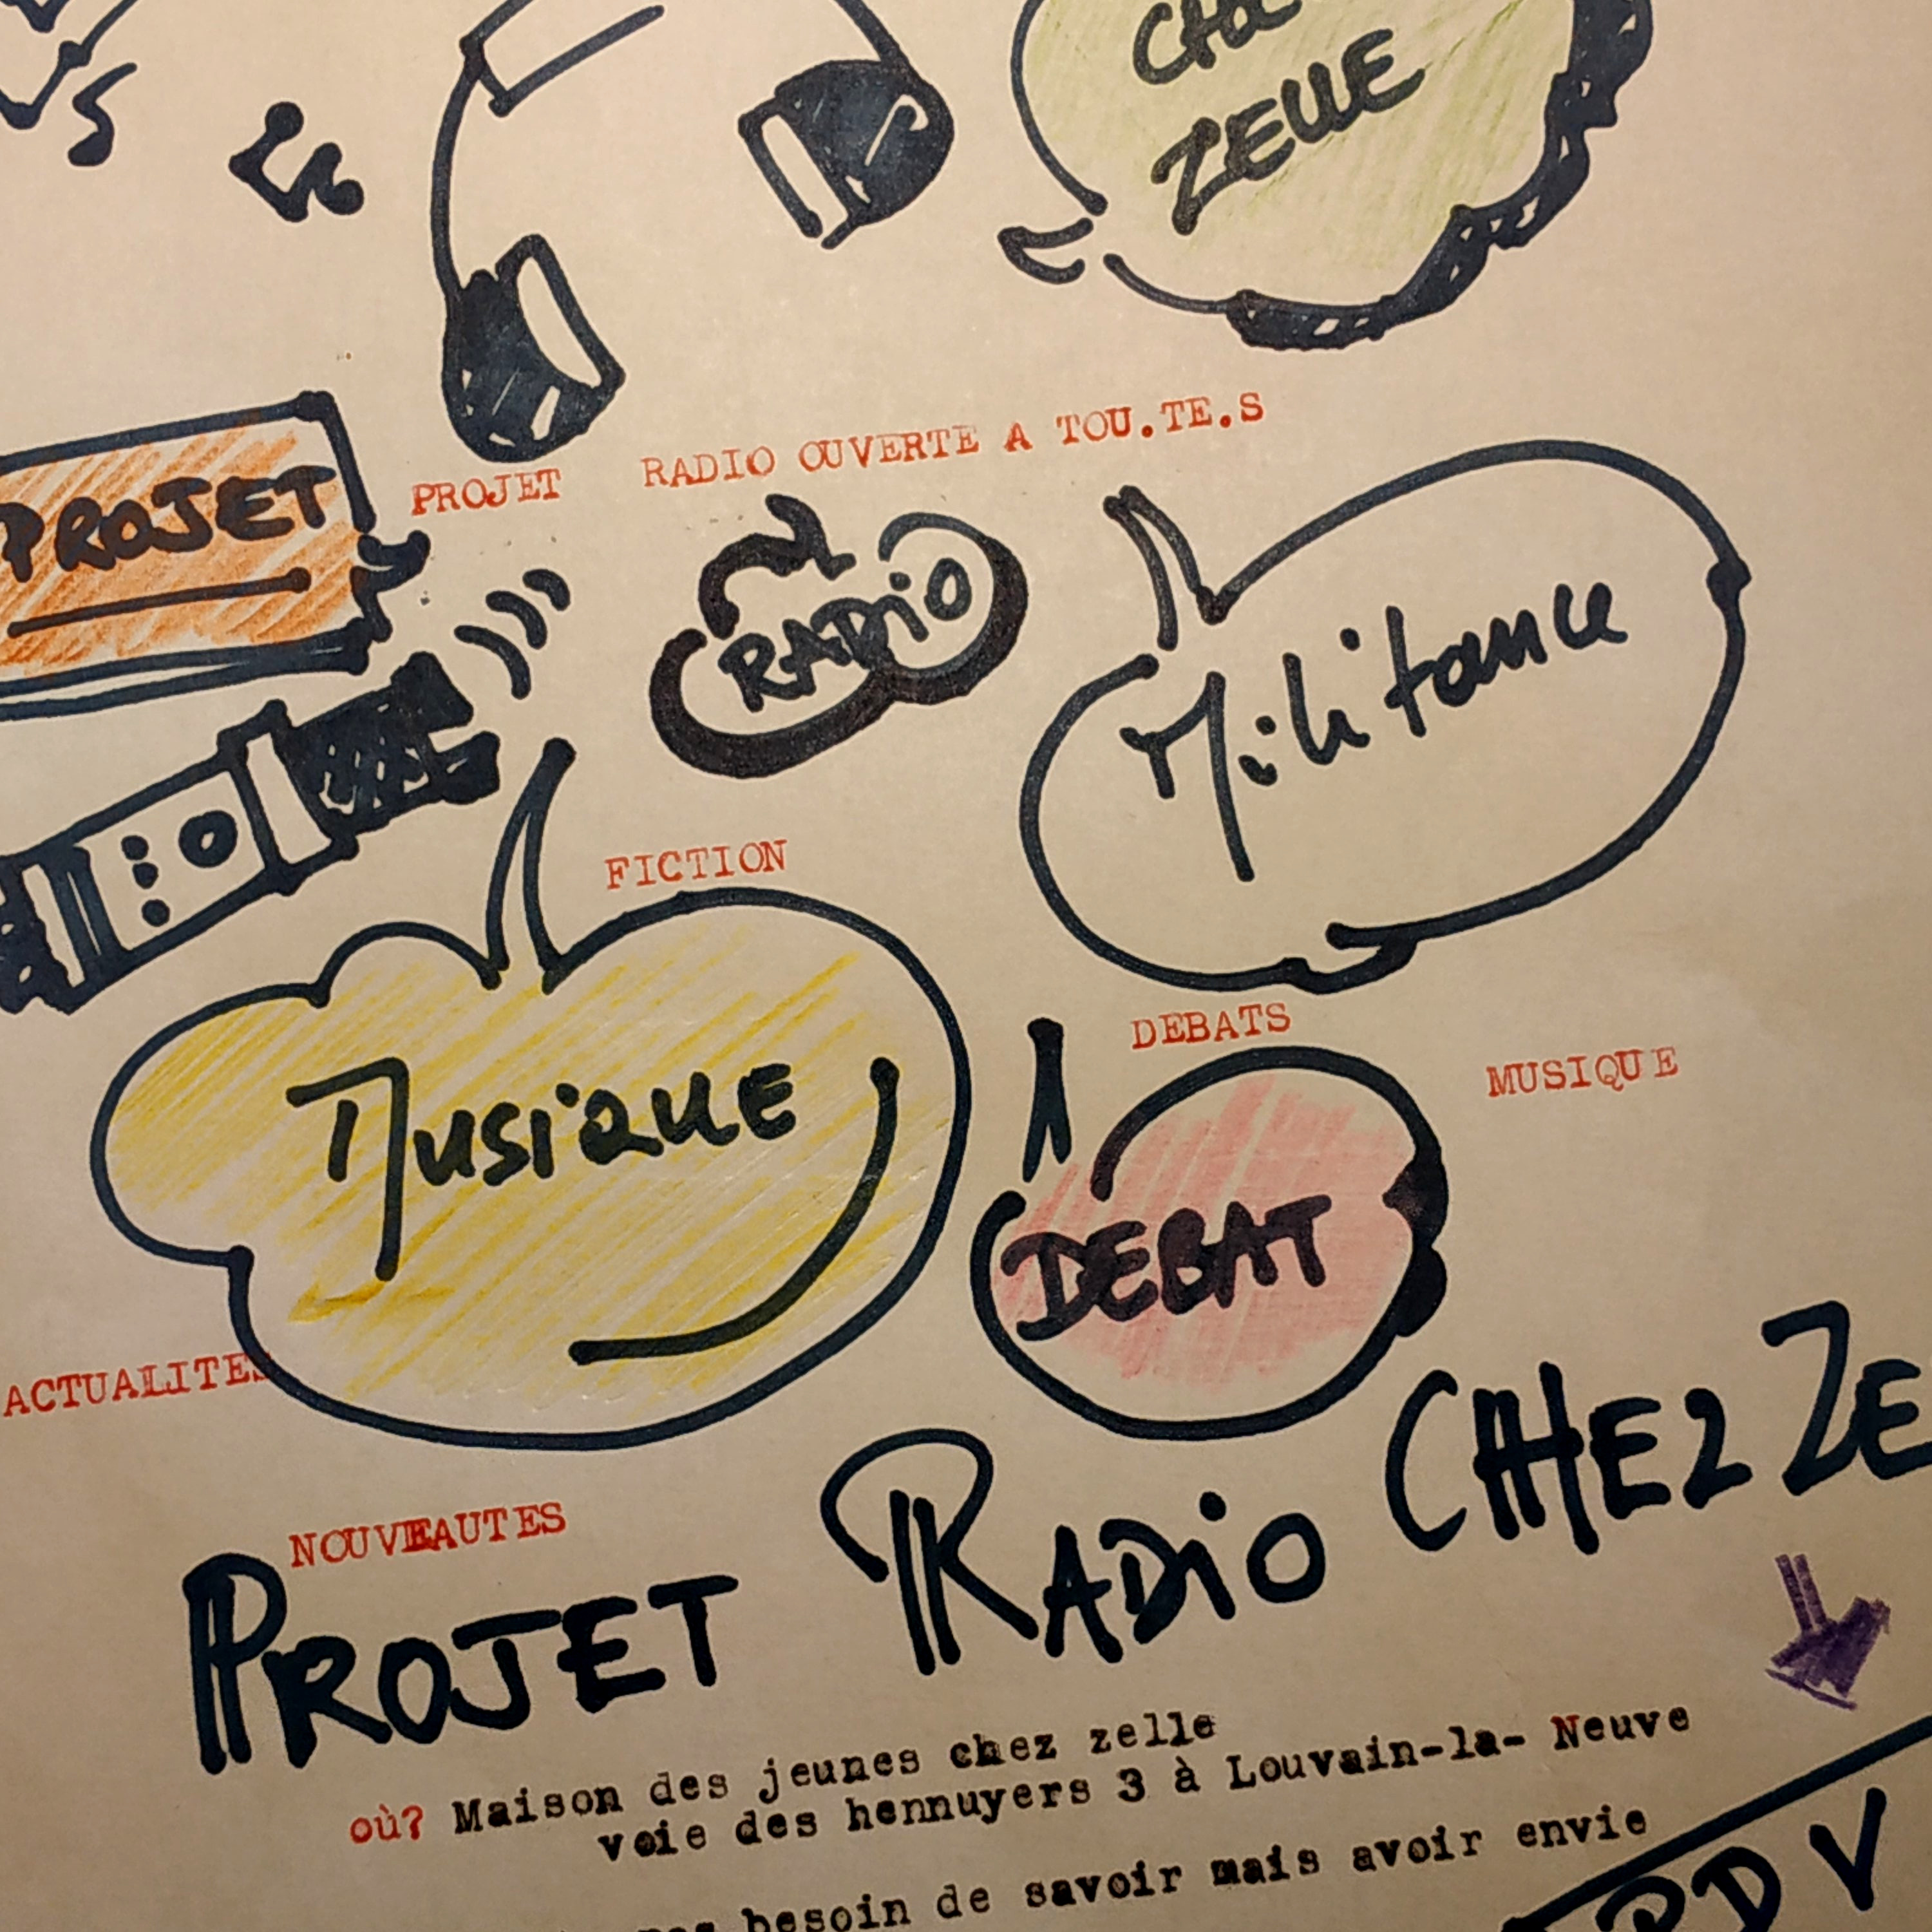 ZELLE
PROJET RADIO OUVERTE A TOU.TE.S
PROJET
RADIO
Militance
FICTION
DEBATS
MUSIQUE
Musique
DEBAT
ACTUALITES
NOUVEAUTES
PROJET RADIO CHEZ ZE
où? Maison des jeunes chez zelle
voie des hennuyers 3 à Louvain-la- Neuve
besoin de savoir mais avoir envie
RDV